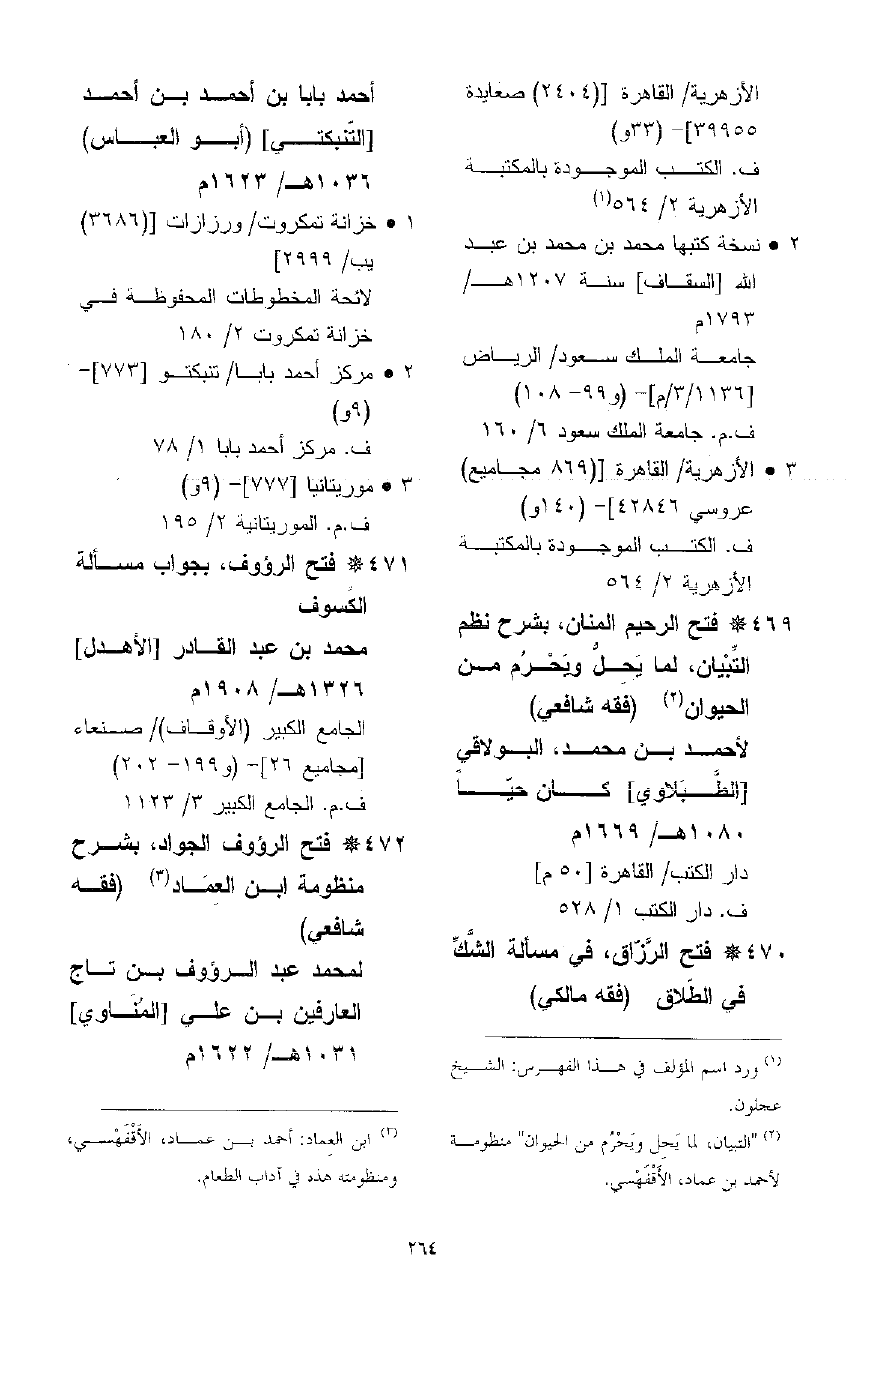 الأزهرية/ القاهرة [(٢٤٠٤) صعايدة
٣٩٩٥٥]– (٣٣و)
ف. الكتب الموجودة بالمكتبة
الأزهرية ٢/ ٥٦٤(١)
٢ • نسخة كتبها محمد بن محمد بن عبد
الله [السقاف] سنة ١٢٠٧هـ/
١٧٩٣م
جامعة الملك سعود/ الرياض
[١١٣٦/٣/م]– (و٩٩– ١٠٨)
ف.م. جامعة الملك سعود ٦/ ١٦٠
٣ • الأزهرية/ القاهرة [(٨٦٩ مجاميع)
عروسي ٤٢٨٤٦]– (١٤٠و)
ف. الكتب الموجودة بالمكتبة
الأزهرية ٢/ ٥٦٤
٤٦٩ ❋ فتح الرحيم المنان، بشرح نظم
التِّبْيان، لما يَحِلُّ ويَحْرُم من
الحيوان(٢) (فقه شافعي)
لأحمد بن محمد، البولاقي
[الطَّبَلاوي] كان حيّاً
١٠٨٠هـ/ ١٦٦٩م
دار الكتب/ القاهرة [٥٠ م]
ف. دار الكتب ١/ ٥٢٨
٤٧٠ ❋ فتح الرَّزّاق، في مسألة الشَّكِّ
في الطَّلاق (فقه مالكي)
(١) ورد اسم المؤلف في هذا الفهرس: الشيخ
عجلون.
(٢) "التبيان، لما يَحِل ويَحْرُم من الحيوان" منظومة
لأحمد بن عماد، الأَقْفَهْسي.
أحمد بابا بن أحمد بن أحمد
[التُّنبكتي] (أبو العباس)
١٠٣٦هـ/ ١٦٢٣م
١ • خزانة تمكروت/ ورزازات [(٣٦٨٦)
يب/ ٢٩٩٩]
لائحة المخطوطات المحفوظة في
خزانة تمكروت ٢/ ١٨٠
٢ • مركز أحمد بابا/ تنبكتو [٧٧٣]–
(٩و)
ف. مركز أحمد بابا ١/ ٧٨
٣ • موريتانيا [٧٧٧]– (٩و)
ف.م. الموريتانية ٢/ ١٩٥
٤٧١ ❋ فتح الرؤوف، بجواب مسألة
الكُسوف
محمد بن عبد القادر [الأهدل]
١٣٢٦هـ/ ١٩٠٨م
الجامع الكبير (الأوقاف)/ صنعاء
[مجاميع ٢٦]– (و١٩٩– ٢٠٢)
ف.م. الجامع الكبير ٣/ ١١٢٣
٤٧٢ ❋ فتح الرؤوف الجواد، بشرح
منظومة ابن العِمَاد(٣) (فقه
شافعي)
لمحمد عبد الرؤوف بن تاج
العارفين بن علي [المُنَاوي]
١٠٣١هـ/ ١٦٢٢م
(٣) ابن العِماد: أحمد بن عماد، الأَقْفَهْسي،
ومنظومته هذه في آداب الطعام.
٢٦٤